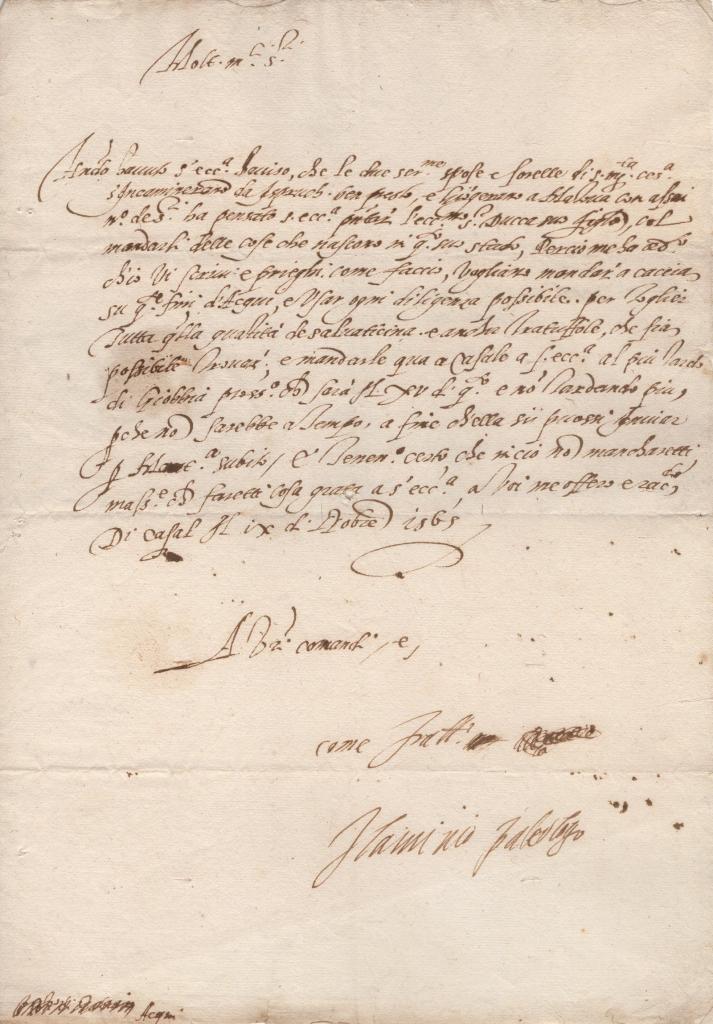 Molt. m.co s.r
havuto s. ecc.a haviso, che le due ser.me spose e sorelle di s. m.tà ces.a
s'incamineran da Ispruch ben presto, e a Mantua con assai
n.o de s.ri ha pensato s. ecc.a s.r Ducca suo figlio, col
mandarli delle cose che nascono in q.o suo stato, Perciò me ha
ch'io vi scriva e prieghi come faccio, vogliano mandar a caccia
su q.e fini d'Acqui, e usar ogni diligenza possibile per
tutta q.lla qualità de salvaticina e ancho tratuffole, che sia
possibile trovar, e mandarle qua a Casale a s. ecc.a al più tardo
di Giobbia pross.o ch sarà il XV d. q.o e no tardando più,
p che no sarebbe a tempo, a fine ch'ella sii possi inviar
p subito, e tenen.o certo che in ciò no mancharetti,
mass.e ch faretti cosa grata a s. ecc.a, a voi me offero e rac.do
Di Casal Il ix di 1565
A v.ri comandi, e,
come frat.o
Flaminio Paleologo
Acqui